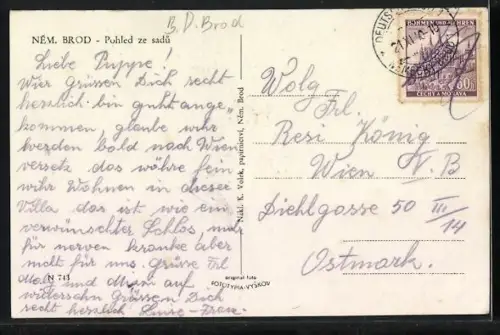 B. D. Brod
NĚM. BROD - Pohled ze sadů
Liebe Puppe!
Wier Grüssen Dich recht
herzlich bin guht ange-
kommen, glaube wihr
werden bald nach Wien
versetz, das wöhre fein
wihr Wohnen in dieser
Villa das ist wie ein
verwünschter Schlos, nur
für nerven kranke aber
nicht für uns. Grüsse Frl
und auf
widersehn Grüssen Dich
recht herzlich
N 743
Nákl. K. Volek, papírnictví, Něm. Brod
original foto
FOTOTYPIA-VYŠKOV
DEUTSCH
BÖHMEN UND MÄHREN
60h
ČECHY A MORAVA
Wolg
Frl.
Resi König
Wien V. B
Diehlgasse 50 III/14
Ostmark.